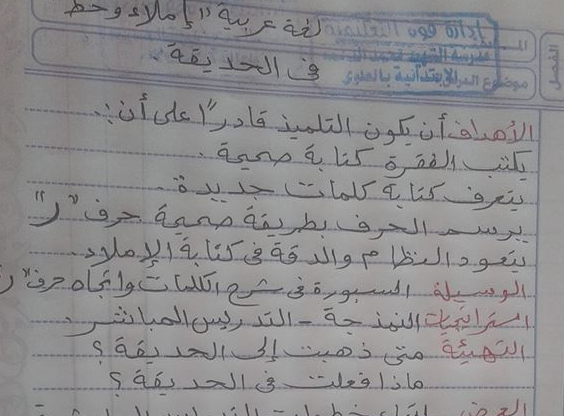 لغة عربية "إملاء وخط
إدارة قوه التعليمية
في الحديقة
موضوع الدرس
الأهداف أن يكون التلميذ قادرًا على أن :.
يكتب الفقرة كتابة صحيحة .
يتعرف كتابة كلمات جديدة .
يرسم الحرف بطريقة صحيحة حرف "ر"
يتعود النظام والدقة في كتابة الإملاء .
الوسيلة السبورة في شرح الكلمات واتجاه حرف "ر
استراتيجيات النمذجة - التدريس المباشر .
التهيئة متى ذهبت إلى الحديقة ؟
ماذا فعلت في الحديقة ؟
العرض